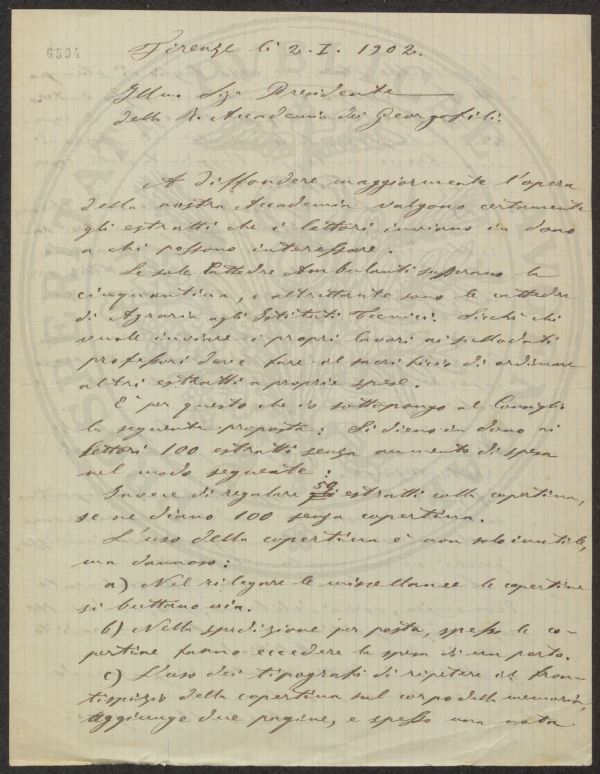 6594
Firenze li 2. I. 1902.
Illmo. Sigr Presidente
della R. Accademia dei Georgofili.
A diffondere maggiormente l'opera
della nostra Accademia valgono certamente
gli estratti che i lettori inviano in dono
a chi possono interessare.
Le sole Cattedre Ambulanti superano la
cinquantina, e altrettante sono le cattedre
di Agraria agli Istituti Tecnici. Sicchè chi
vuole inviare i propri lavori ai sullodati
professori deve fare il sacrificio di ordinare
altri estratti a proprie spese.
E' per questo che io sottopongo al Consiglio
la seguente proposta: Si dieno in dono ai
lettori 100 estratti senza aumento di spesa
nel modo seguente:
Invece di regalare 50 estratti colla copertina,
se ne diano 100 senza copertina.
L'uso della copertina è non solo inutile,
ma dannoso:
a) Nel rilegare le miscellanee le copertine
si buttano via.
b) Nella spedizione per posta, spesso le co-
pertine fanno eccedere la spesa di un porto.
c) L'uso dei tipografi di ripetere il fron-
tispizio della copertina sul corpo della memoria,
aggiunge due pagine, e spesso una nota